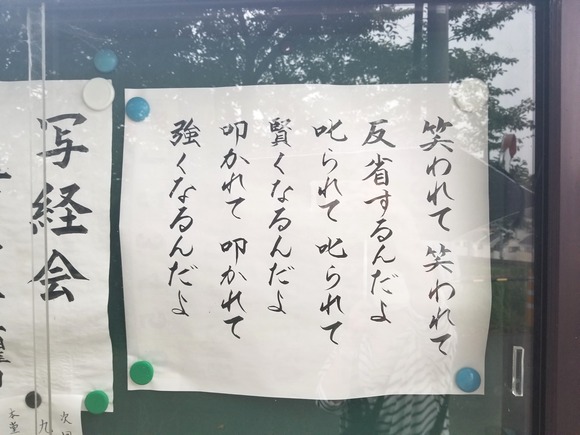 笑われて 笑われて
反省するんだよ
叱られて 叱られて
賢くなるんだよ
叩かれて 叩かれて
強くなるんだよ
写経会